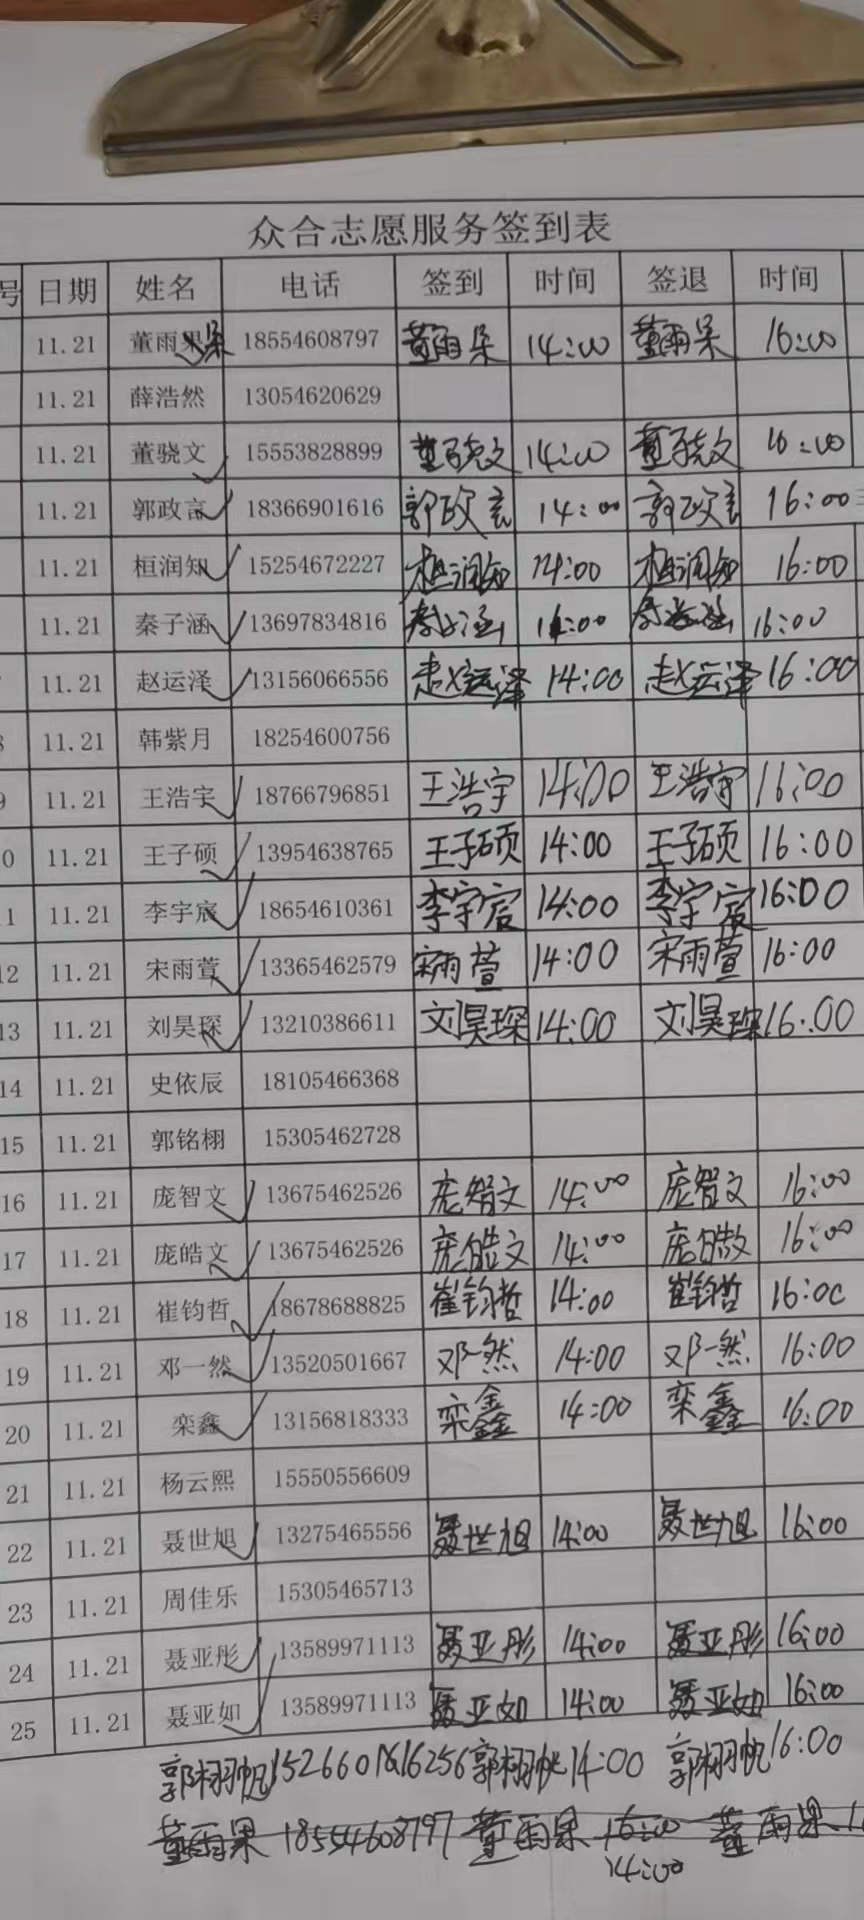 众合志愿服务签到表
号 日期 姓名 电话 签到 时间 签退 时间
11.21 董雨果 朵 18554608797 董雨朵 14:00 董雨呆 16:00
11.21 薛浩然 13054620629
11.21 董骁文 15553828899 董骁文 14:00 董骁文 16:00
11.21 郭政言 18366901616 郭政言 14:00 郭政言 16:00
11.21 桓润知 15254672227 桓润知 14:00 桓润知 16:00
11.21 秦子涵 13697834816 秦子涵 14:00 秦子涵 16:00
11.21 赵运泽 13156066556 赵运泽 14:00 赵运泽 16:00
8 11.21 韩紫月 18254600756
9 11.21 王浩宇 18766796851 王浩宇 14:00 王浩宇 16:00
0 11.21 王子硕 13954638765 王子硕 14:00 王子硕 16:00
11 11.21 李宇宸 18654610361 李宇宸 14:00 李宇宸 16:00
12 11.21 宋雨萱 13365462579 宋雨萱 14:00 宋雨萱 16:00
13 11.21 刘昊琛 13210386611 刘昊琛 14:00 刘昊琛 16:00
14 11.21 史依辰 18105466368
15 11.21 郭铭栩 15305462728
16 11.21 庞智文 13675462526 庞智文 14:00 庞智文 16:00
17 11.21 庞皓文 13675462526 庞皓文 14:00 庞皓文 16:00
18 11.21 崔钧哲 18678688825 崔钧哲 14:00 崔钧哲 16:00
19 11.21 邓一然 13520501667 邓一然 14:00 邓一然 16:00
20 11.21 栾鑫 13156818333 栾鑫 14:00 栾鑫 16:00
21 11.21 杨云熙 15550556609
22 11.21 聂世旭 13275465556 聂世旭 14:00 聂世旭 16:00
23 11.21 周佳乐 15305465713
24 11.21 聂亚彤 13589971113 聂亚彤 14:00 聂亚彤 16:00
25 11.21 聂亚如 13589971113 聂亚如 14:00 聂亚如 16:00
郭栩帆 郭栩帆 14:00 郭栩帆 16:00
董雨果 18554608797 董雨果 16:00 董雨果
14:00